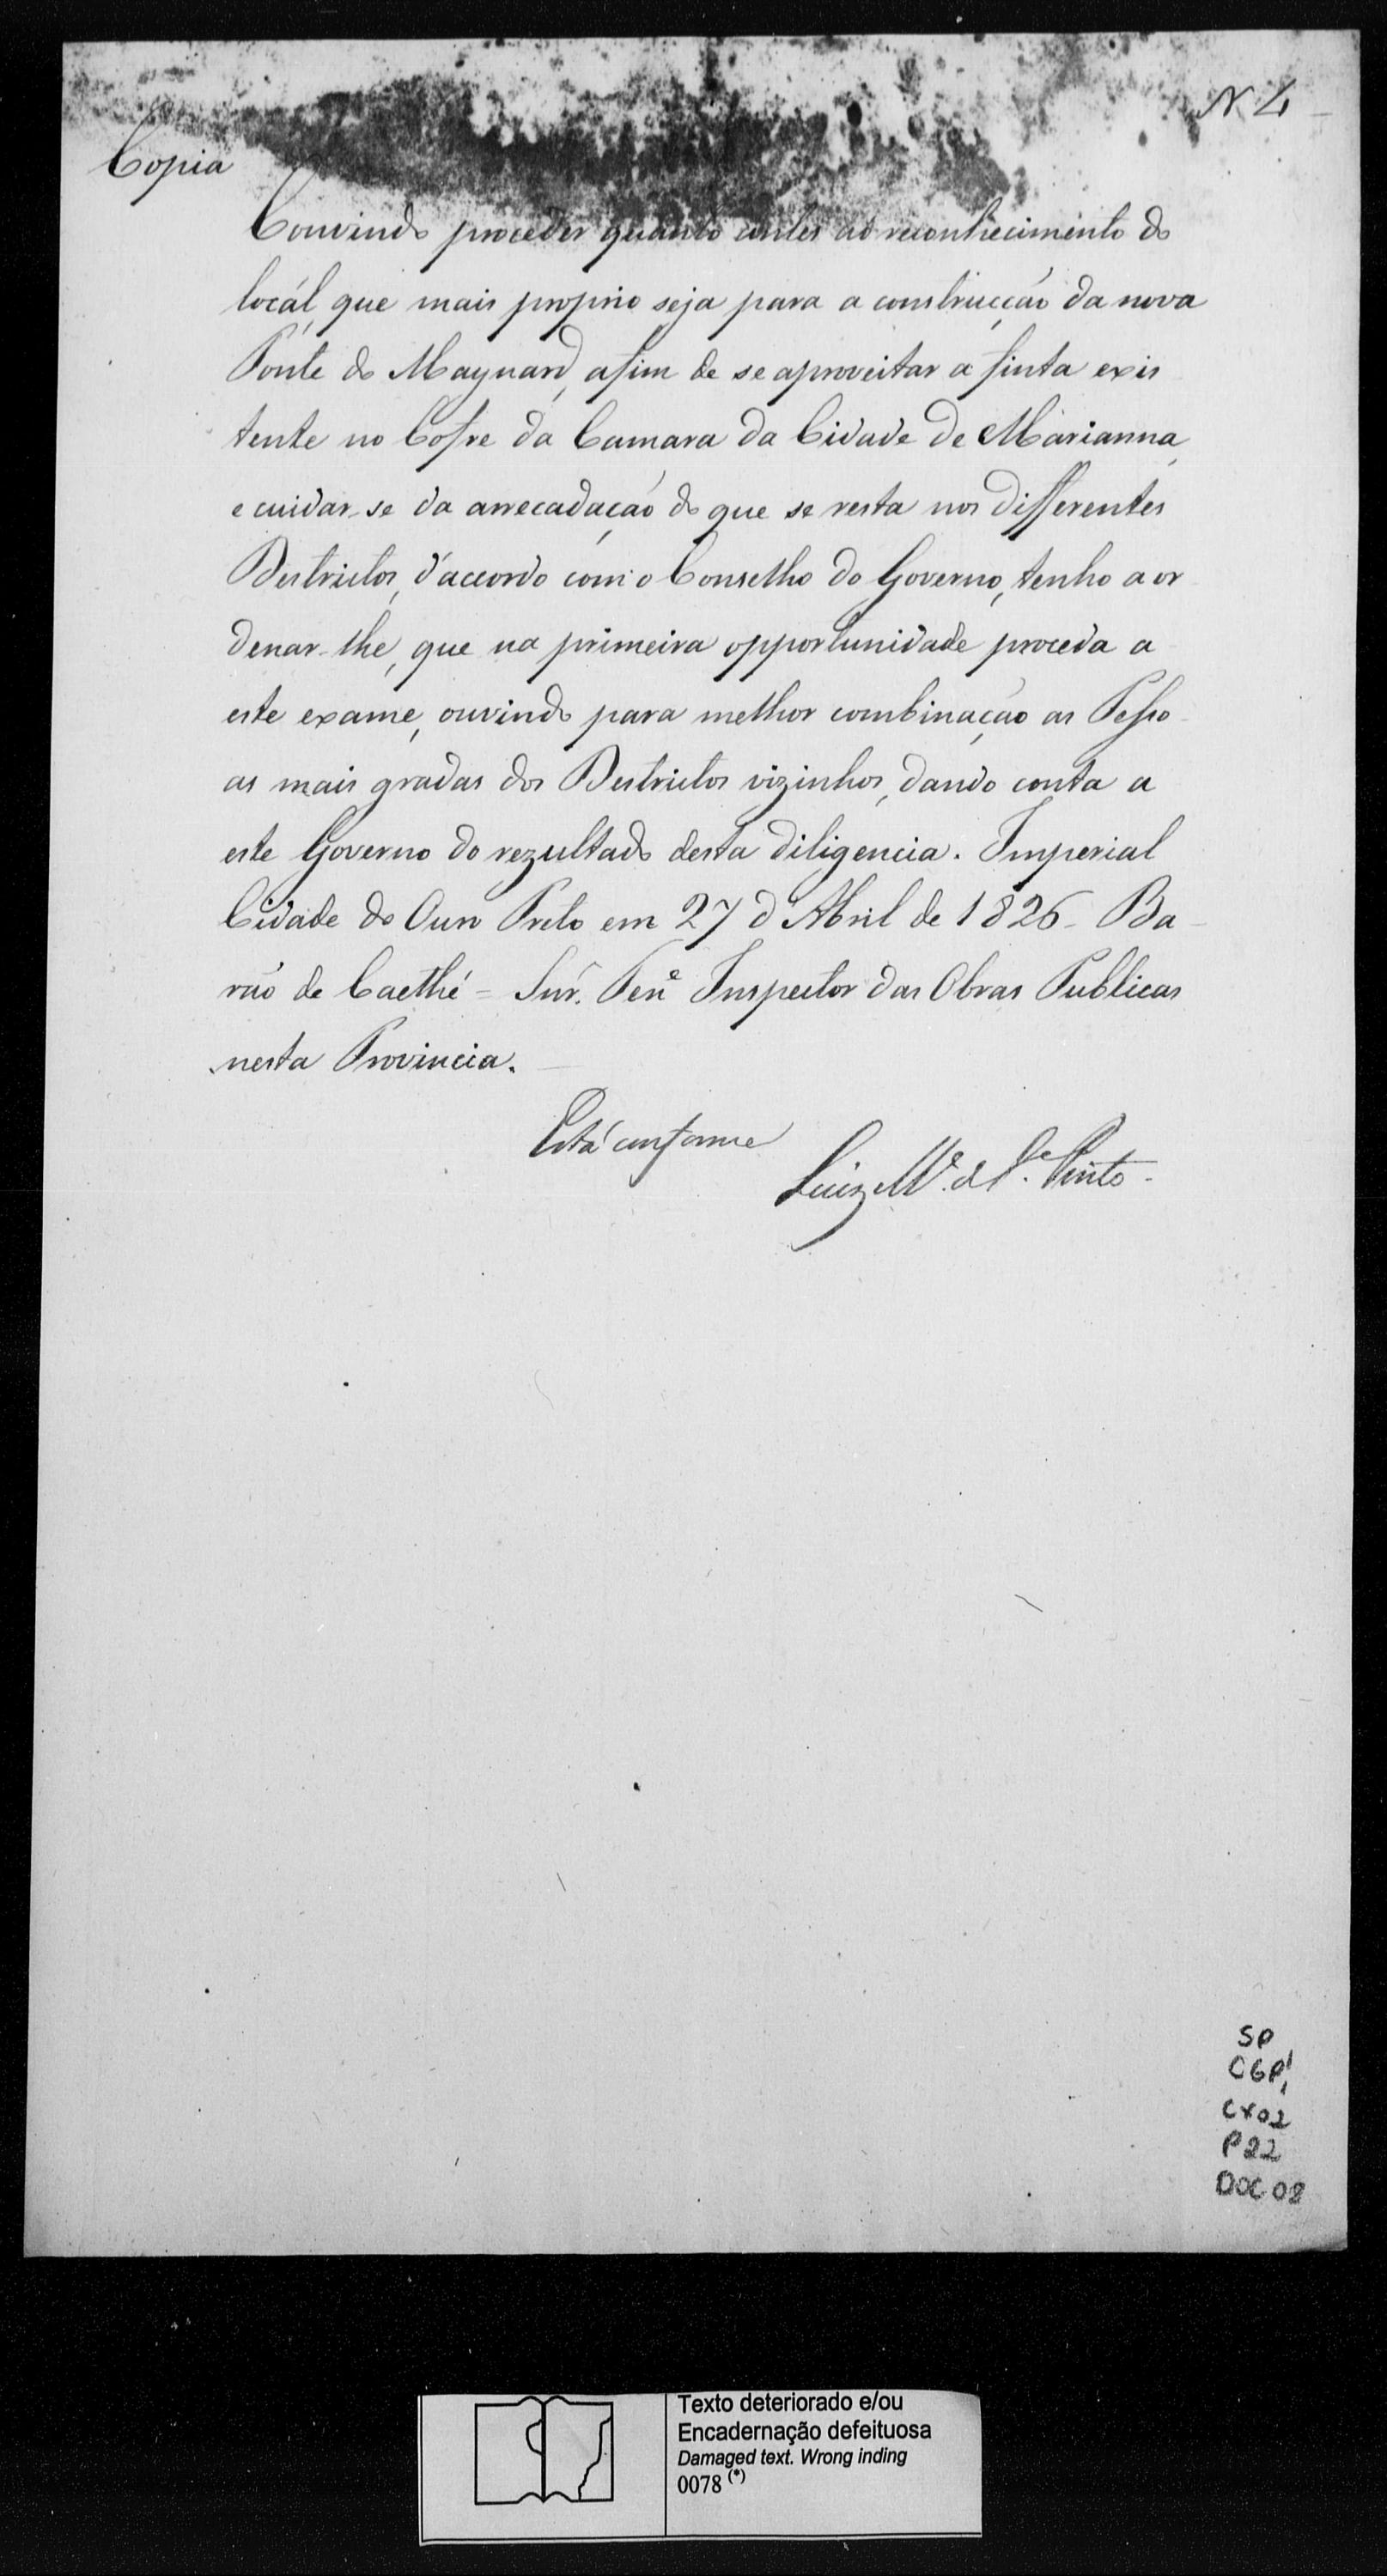 N. 4
Copia
Convindo proceder quanto antes ao reconhecimento do
locál, que mais proprio seja para a construcção da nova
Ponte do Maynard, afim de se aproveitar a finta exis
tente no Cofre da Camara da Cidade de Marianna,
e cuidar-se da arrecadação do que se resta nos differentes
Destrictos, d'accordo com o Conselho do Governo, tenho a or
denar-lhe, que na primeira opportunidade proceda a
este exame, ouvindo para melhor combinação as Pesso-
as mais gradas dos Destrictos vizinhos, dando conta a
este Governo do rezultado desta diligencia. Imperial
Cidade do Ouro Preto em 27 d'Abril de 1826 - Ba-
rão de Caethé = Snr. Tene Inspector das Obras Publicas
nesta Provincia.
Está conforme
Luiz Mª. da Sª. Pinto
SP
CGP1
CX02
P22
DOC 08
Texto deteriorado e/ou
Encadernação defeituosa
Damaged text. Wrong inding
0078 (*)